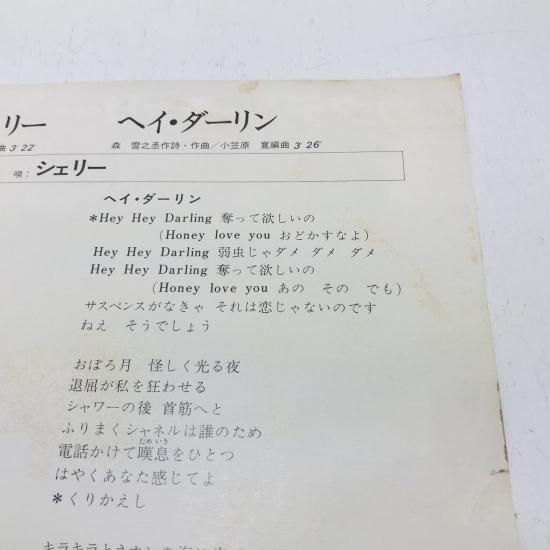 リー
曲 3′22″
ヘイ・ダーリン
森 雪之丞作詩・作曲／小笠原 寛編曲 3′26″
唄：シェリー
ヘイ・ダーリン
*Hey Hey Darling 奪って欲しいの
(Honey love you おどかすなよ)
Hey Hey Darling 弱虫じゃダメ ダメ ダメ
Hey Hey Darling 奪って欲しいの
(Honey love you あの その でも)
サスペンスがなきゃ それは恋じゃないのです
ねえ そうでしょう
おぼろ月 怪しく光る夜
退屈が私を狂わせる
シャワーの後 首筋へと
ふりまくシャネルは誰のため
電話かけて嘆息をひとつ
ためいき
はやくあなた感じてよ
*くりかえし